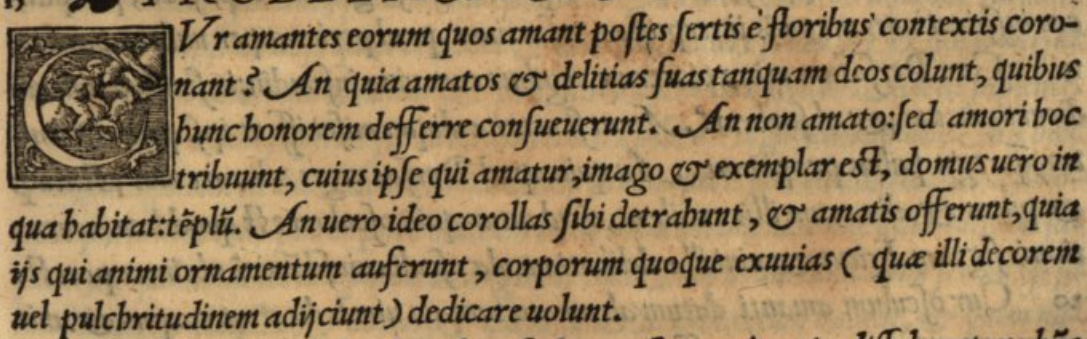 CVr amantes eorum quos amant postes sertis è floribus contextis coro-
nant? An quia amatos & delitias suas tanquam deos colunt, quibus
hunc honorem defferre consueuerunt. An non amato:sed amori hoc
tribuunt, cuius ipse qui amatur,imago & exemplar est, domus uero in
qua habitat:tẽplũ. An uero ideo corollas sibi detrahunt, & amatis offerunt,quia
ijs qui animi ornamentum auferunt, corporum quoque exuuias ( quæ illi decorem
uel pulchritudinem adijciunt) dedicare uolunt.